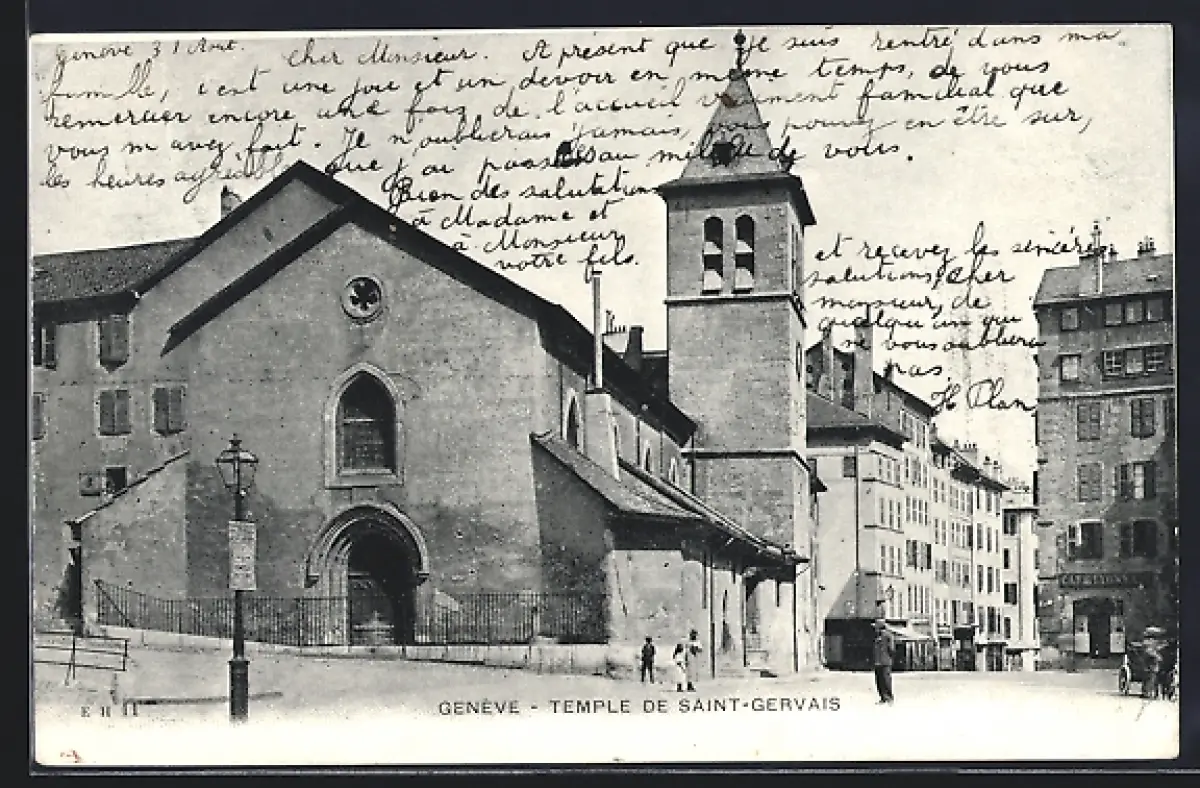 Genève 31 Aout.
Cher Monsieur. A présent que je suis rentré dans ma
famille, c'est une joie et un devoir en même temps, de vous
remercier encore une fois de l'accueil vraiment familial que
vous m'avez fait. Je n'oublierais jamais, vous pouvez en être sur,
les heures agréables que j'ai passées au milieu de vous.
Bien des salutations
à Madame et
à Monsieur
votre fils.
et recevez les sincères
salutions, cher
monsieur, de
quelqu'un qui
ne vous oubliera
pas
H Plan
CAFE
E H
GENÈVE - TEMPLE DE SAINT-GERVAIS